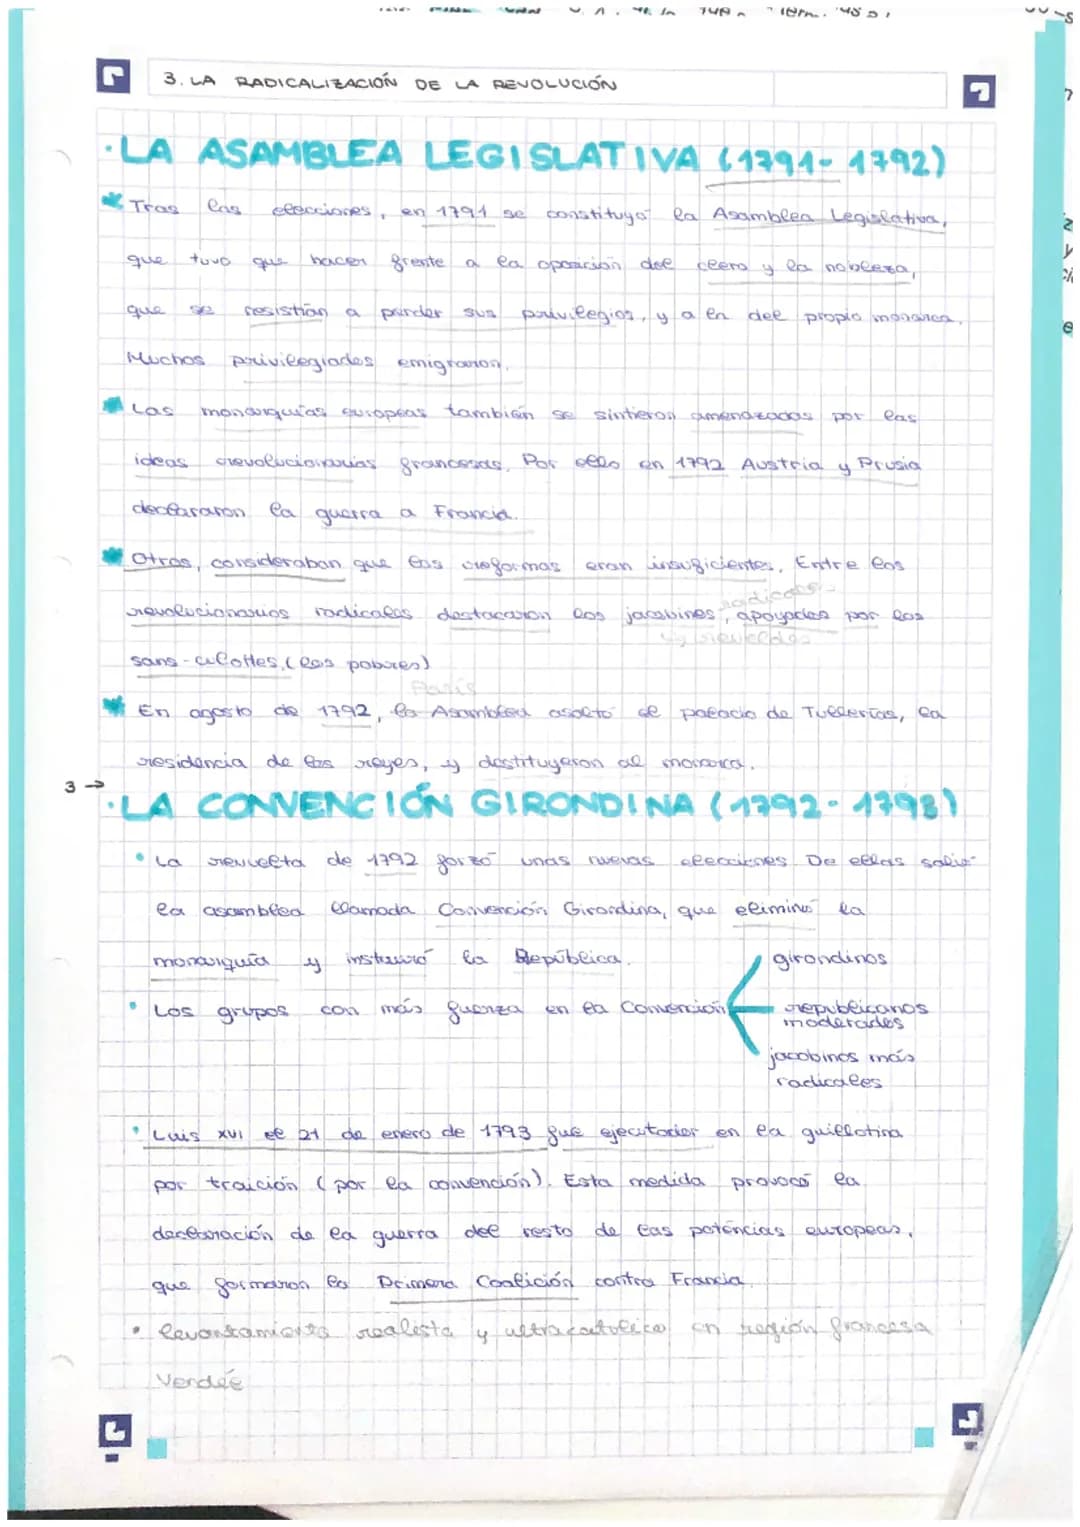 3. LA RADICALIZACIÓN DE LA REVOLUCIÓN
· LA ASAMBLEA LEGISLATIVA (1791- 1792)
Tras las elecciones, en 1791 se constituyó la Asamblea Legislativa,
que tuvo que hacer frente a la oposición del clero y la nobleza,
que se resistían a perder sus privilegios, y a la del propio monarca.
Muchos privilegiados emigraron.
Las monarquías europeas también se sintieron amenazadas por las
ideas revolucionarias francesas. Por ello en 1792 Austria y Prusia
declararon la guerra a Francia.
Otros, consideraban que las reformas eran insuficientes. Entre los
radicales
revolucionarios radicales destacaron los jacobines, apoyados por los
y rebeldes
sans-culottes, (los pobres)
París
En agosto de 1792, la Asamblea asaltó el palacio de Tullerías, la
residencia de los reyes, y destituyeron al monarca.
3 →
· LA CONVENCIÓN GIRONDINA (1792- 1793)
• La revuelta de 1792 forzó unas nuevas elecciones De ellas salió
la asamblea llamada Convención Girondina, que eliminó la
monarquía y instauró la República.
girondinos
• Los grupos con más fuerza en la Convención
republicanos
moderados
jacobinos más
radicales
• Luis XVI el 21 de enero de 1793 fue ejecutado en la guillotina
por traición (por la convención). Esta medida provocó la
declaración de la guerra del resto de las potencias europeas,
que formaron la Primera Coalición contra Francia.
• levantamiento realista y ultracatolico en región francesa
Vendée